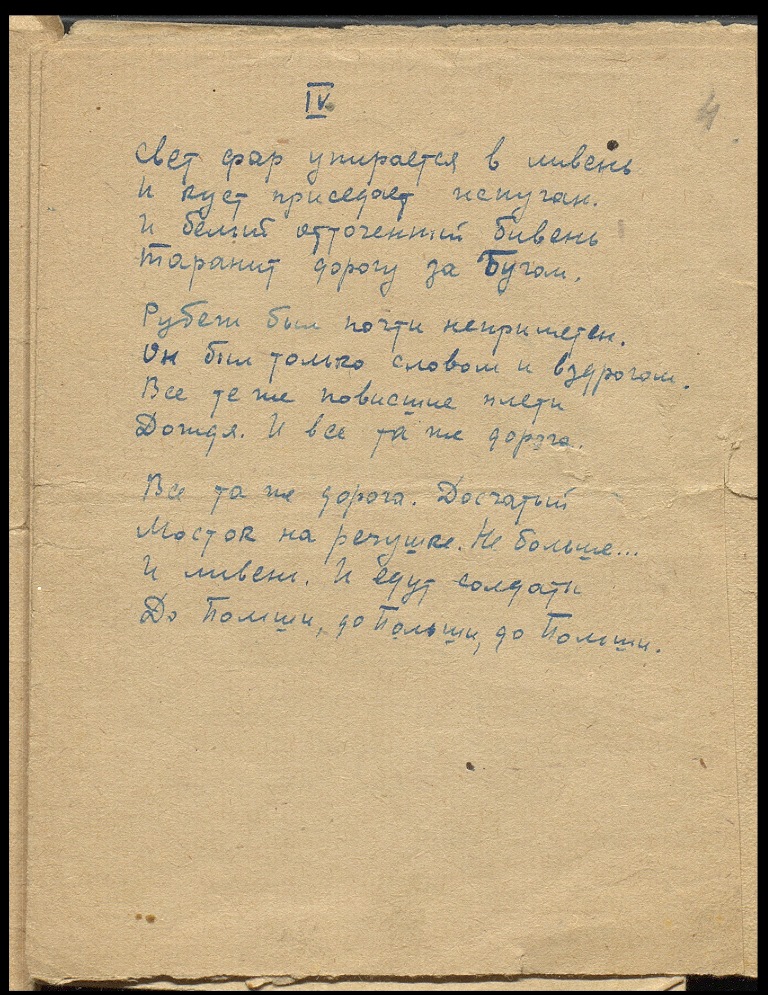 IV.
4
Свет фар упирается в ливень
И куст приседает испуган.
И белый отточенный бивень
Таранит дорогу за Бугом.
Рубеж был почти неприметен.
Он был только словом и вздрогом.
Все те же повисшие плети
Дождя. И все та же дорога.
Все та же дорога. Досчатый
Мосток на речушке. Не больше...
И ливень. И едут солдаты
До Польши, до Польши, до Польши.